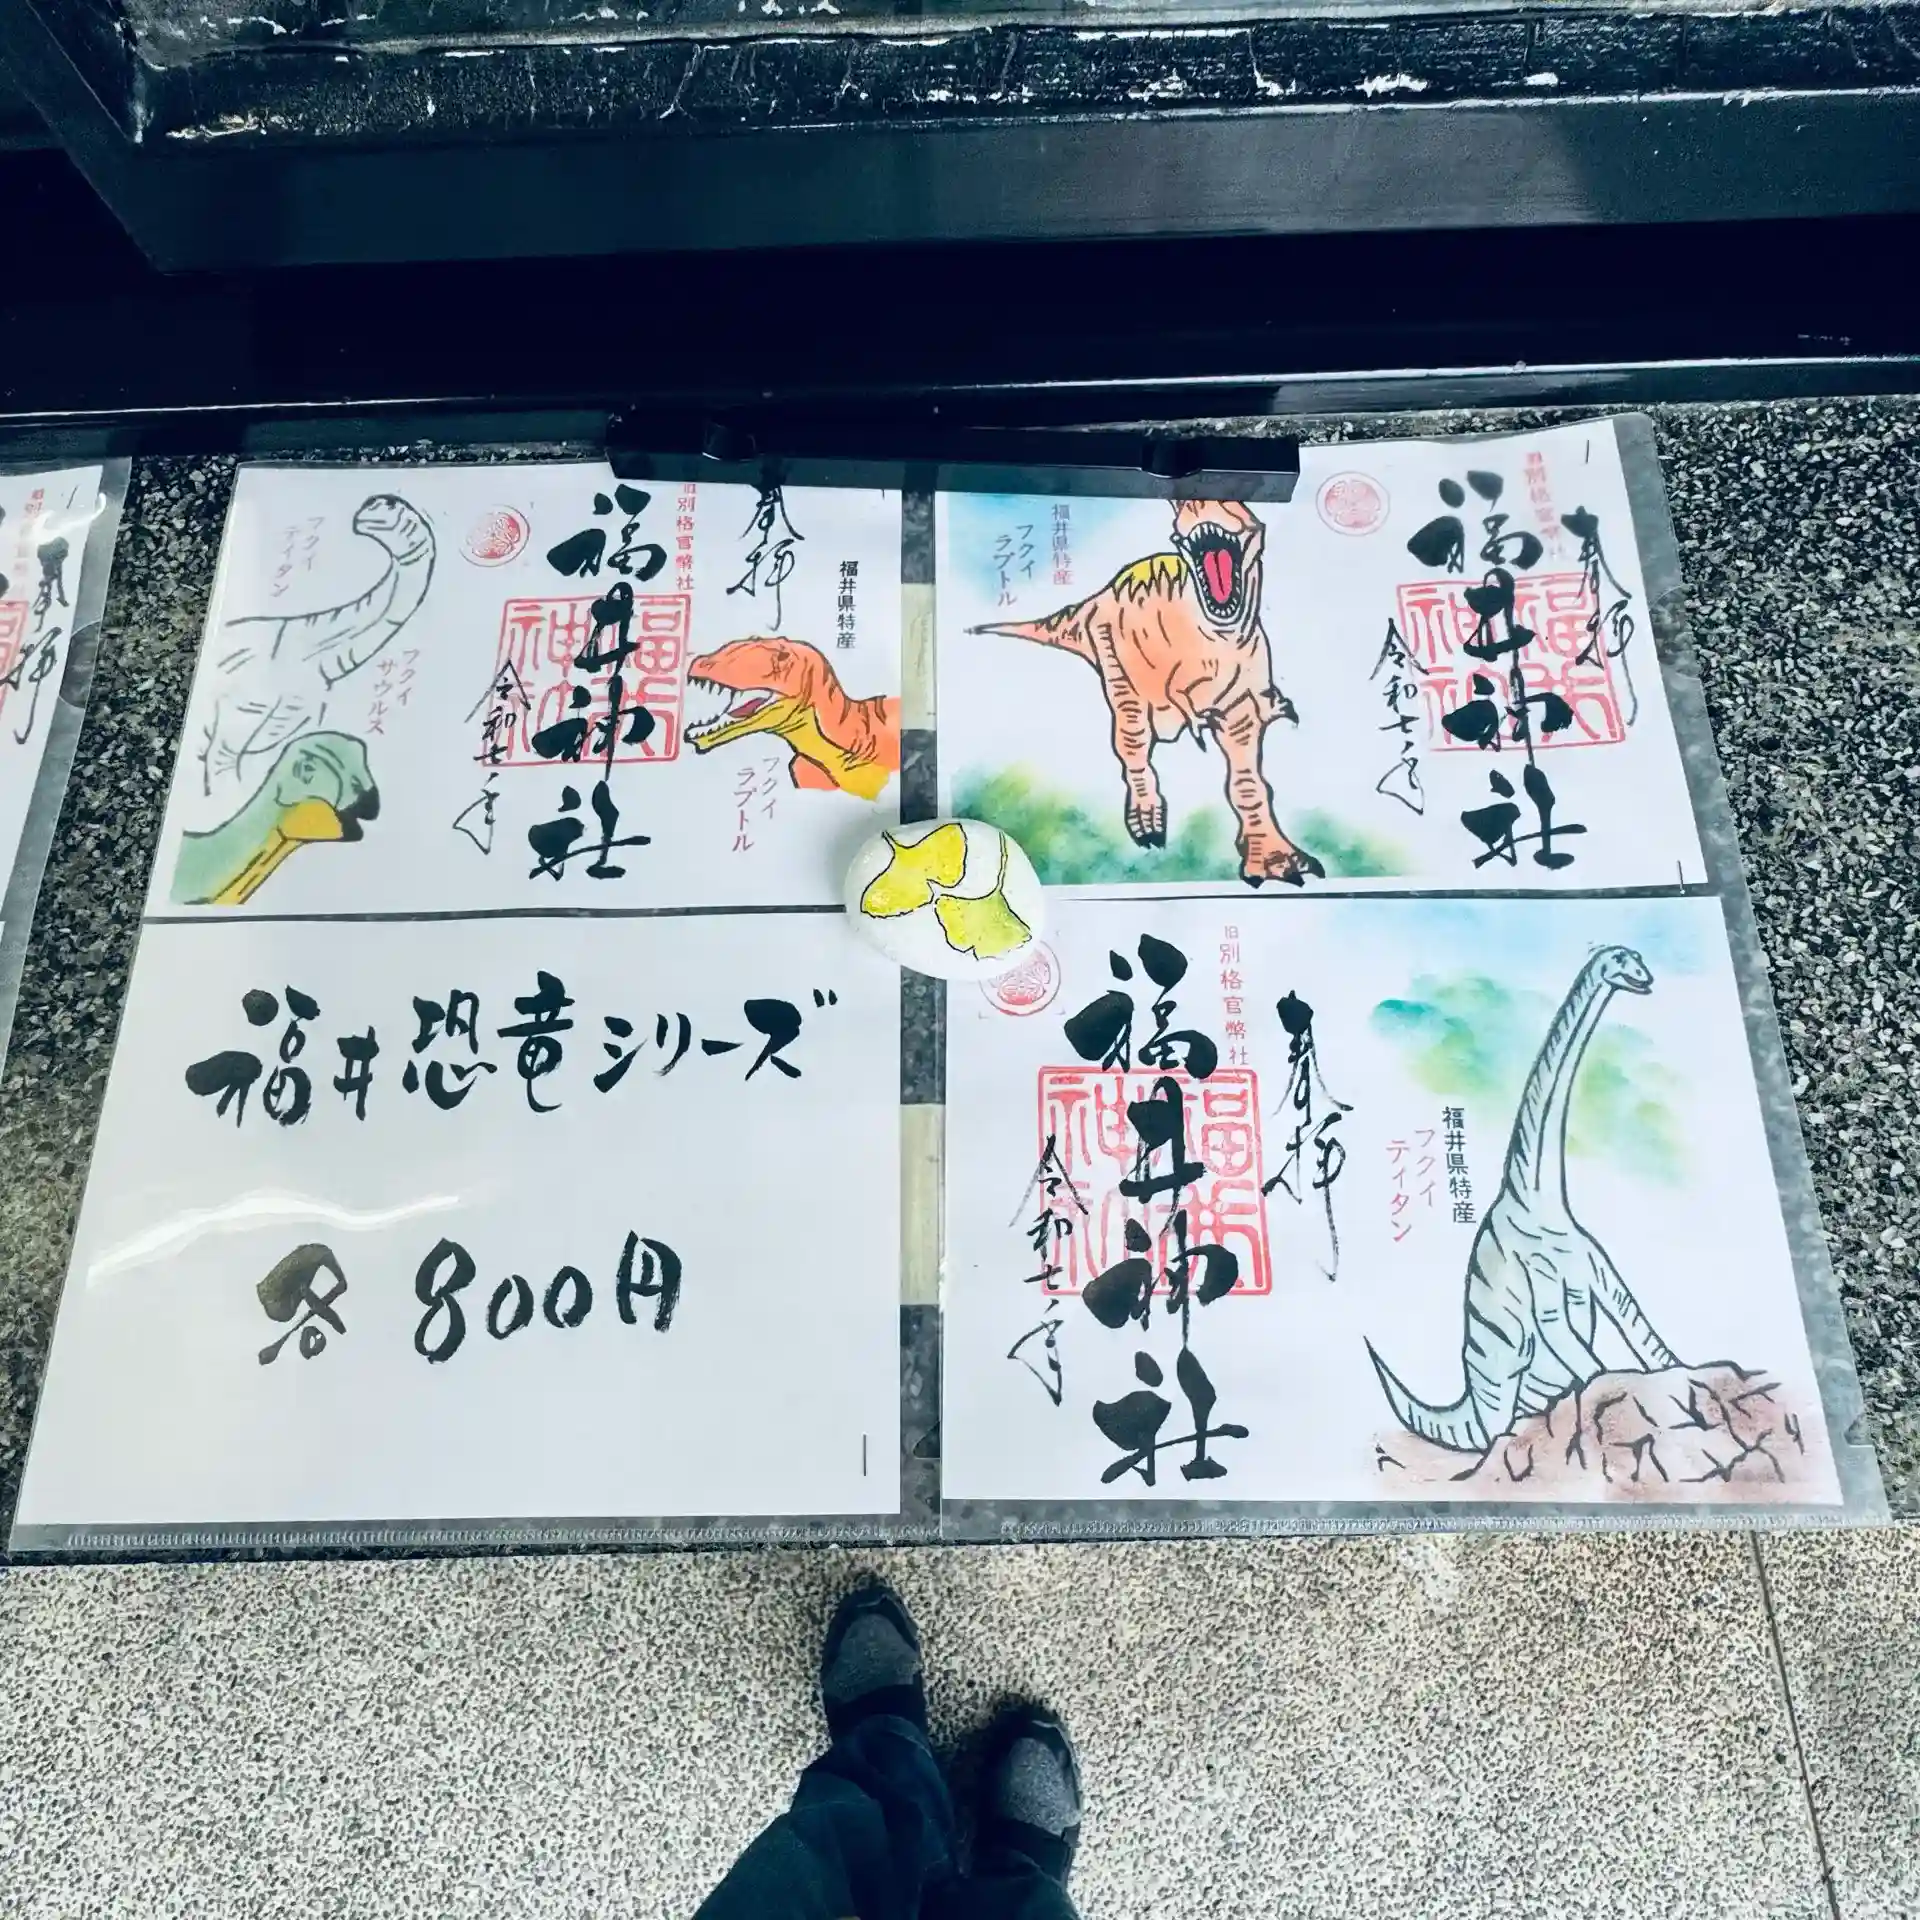 奉拝
福井県特産
旧別格官幣社
福井神社
令和七年
フクイ
ティタン
フクイ
サウルス
フクイ
ラプトル
奉拝
旧別格官幣社
福井神社
令和七年
福井県特産
フクイ
ラプトル
福井恐竜シリーズ
各800円
奉拝
旧別格官幣社
福井神社
令和七年
福井県特産
フクイ
ティタン
奉拝